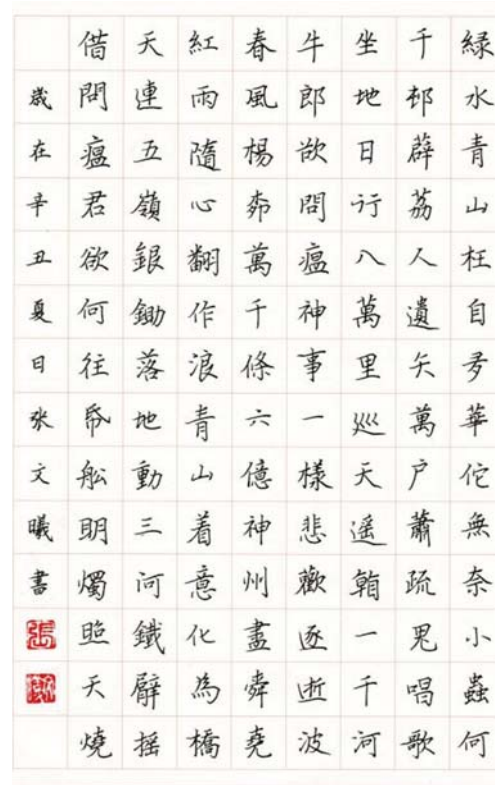 綠水青山枉自多華佗無奈小蟲何
千邨薜荔人遺矢萬户蕭疏鬼唱歌
坐地日行八萬里巡天遥看一千河
牛郎欲問瘟神事一樣悲歡逐逝波
春風楊桺萬千條六億神州盡舜堯
紅雨隨心翻作浪青山着意化為橋
天連五嶺銀鋤落地動三河鐵臂摇
借問瘟君欲何往帋舩眀燭照天燒
歲在辛丑夏日張文曦書
張